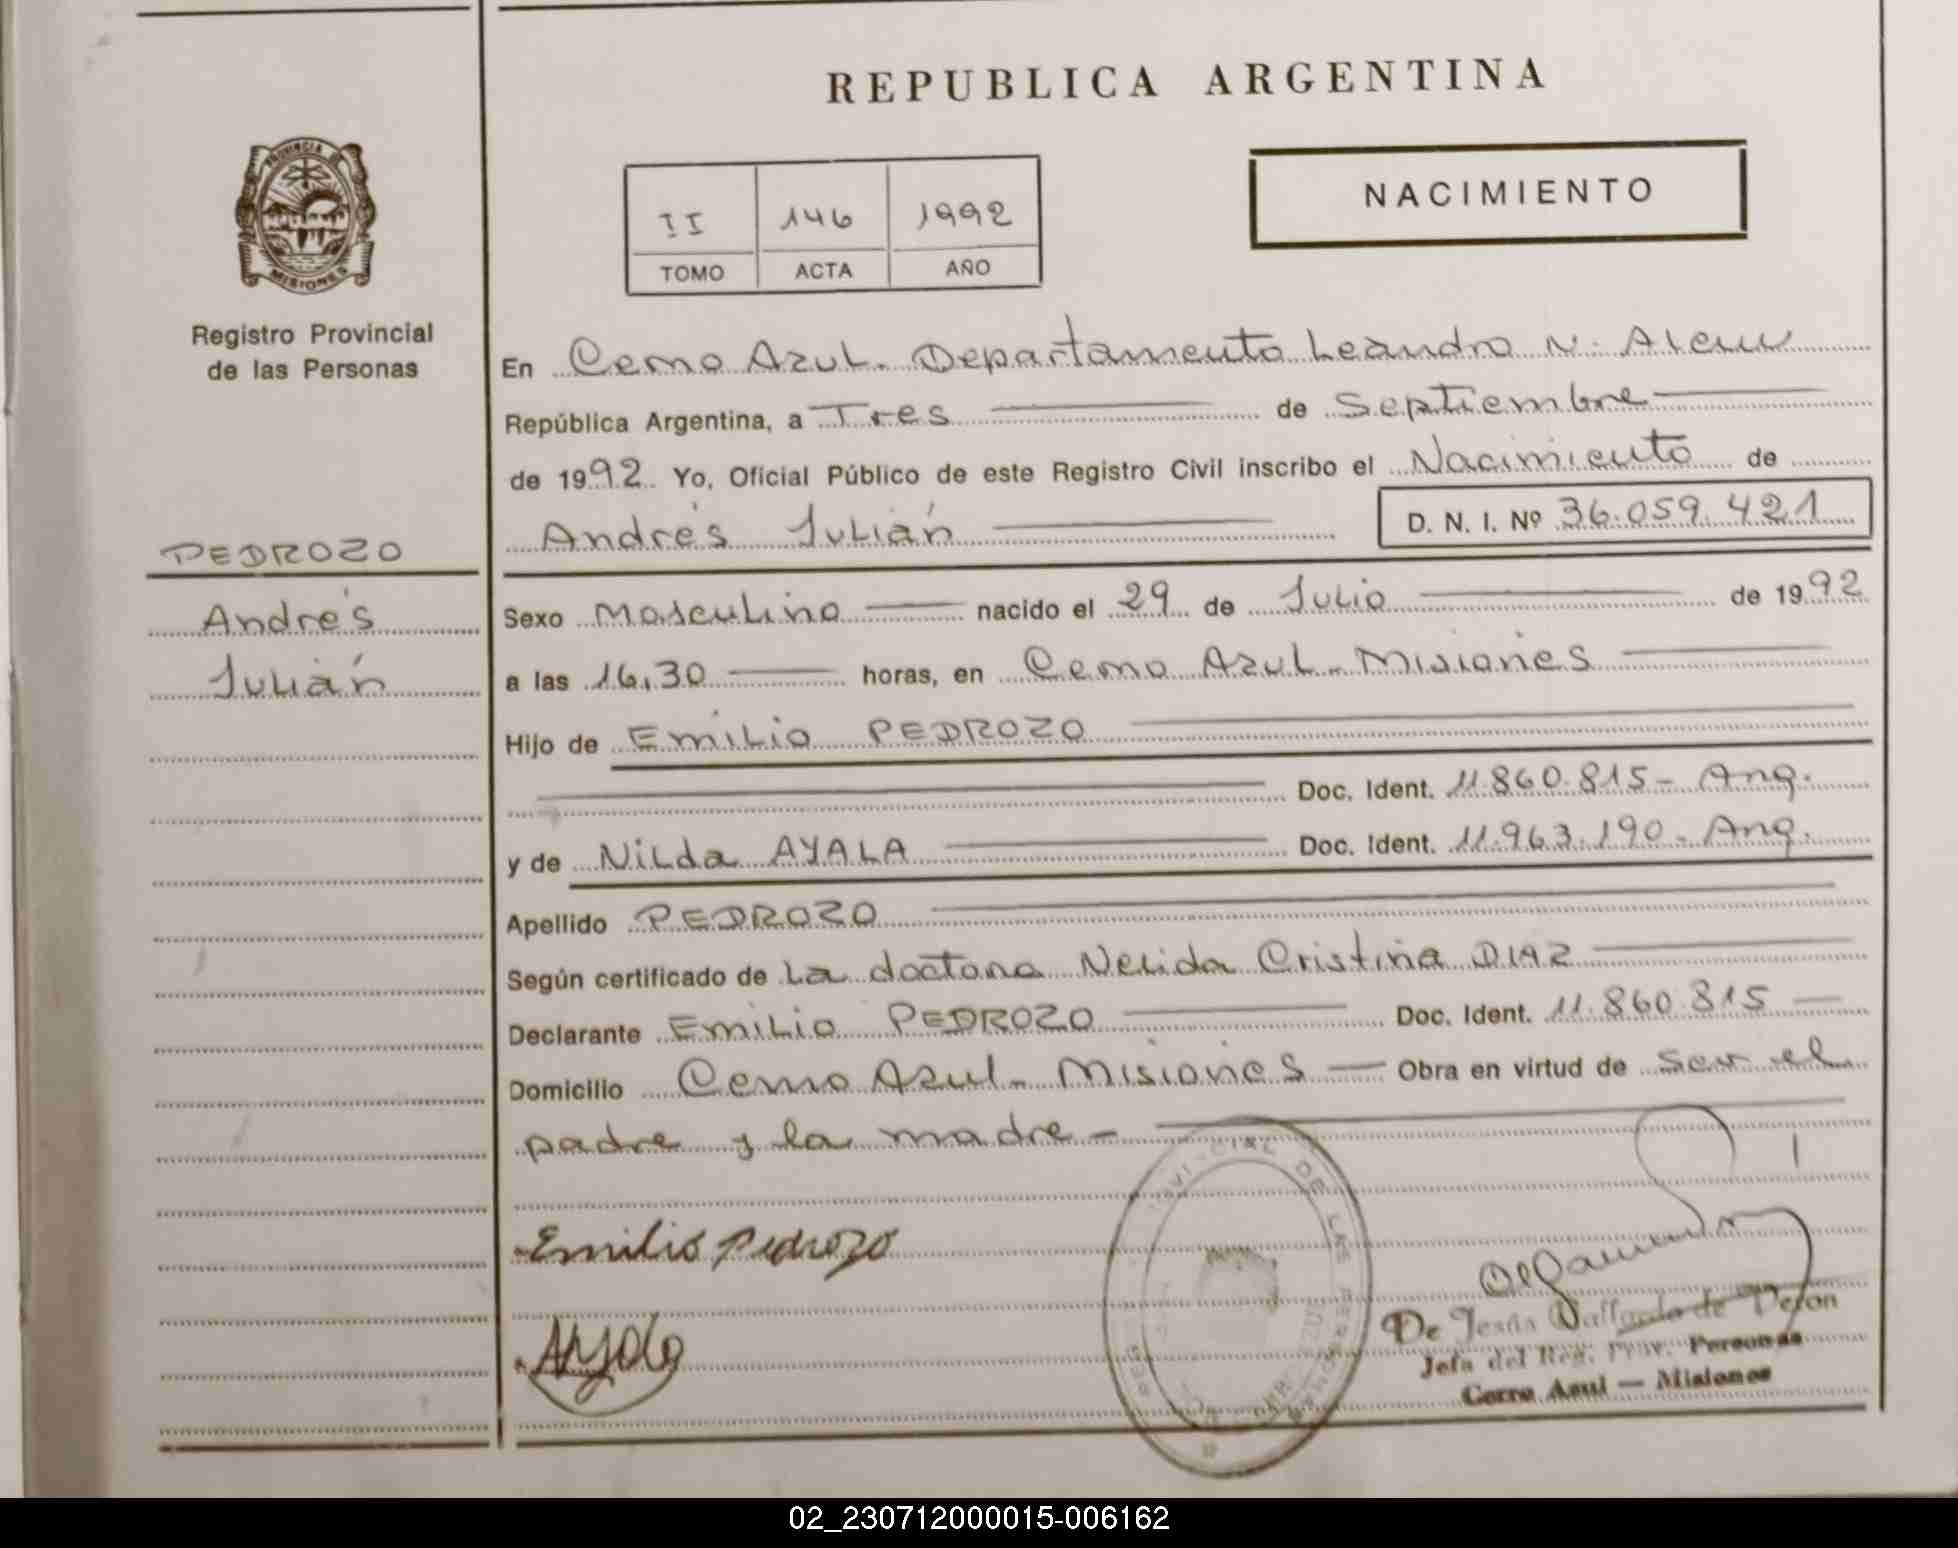 REPUBLICA ARGENTINA
PROVINCIA DE
MISIONES
Registro Provincial
de las Personas
II 146 1992
TOMO ACTA AÑO
NACIMIENTO
En Cerro Azul. Departamento Leandro N. Alem
República Argentina, a Tres de Septiembre
de 1992 Yo, Oficial Público de este Registro Civil inscribo el Nacimiento de
Andrés Julián D. N. I. Nº 36.059.421
PEDROZO
Andrés
Julián
Sexo Masculino nacido el 29 de Julio de 1992
a las 16,30 horas, en Cerro Azul - Misiones
Hijo de Emilio PEDROZO
Doc. Ident. 11.860.815 - Arg.
y de Nilda AYALA Doc. Ident. 11.963.190 - Arg.
Apellido PEDROZO
Según certificado de La doctora Nelida Cristina DIAZ
Declarante Emilio PEDROZO Doc. Ident. 11.860.815
Domicilio Cerro Azul - Misiones Obra en virtud de ser el
padre y la madre -
Emilio Pedrozo
Ayala
De Jesús de
Jefa del Reg. Prov. Personas
Cerro Azul — Misiones
DE LAS PERSONAS
02_230712000015-006162